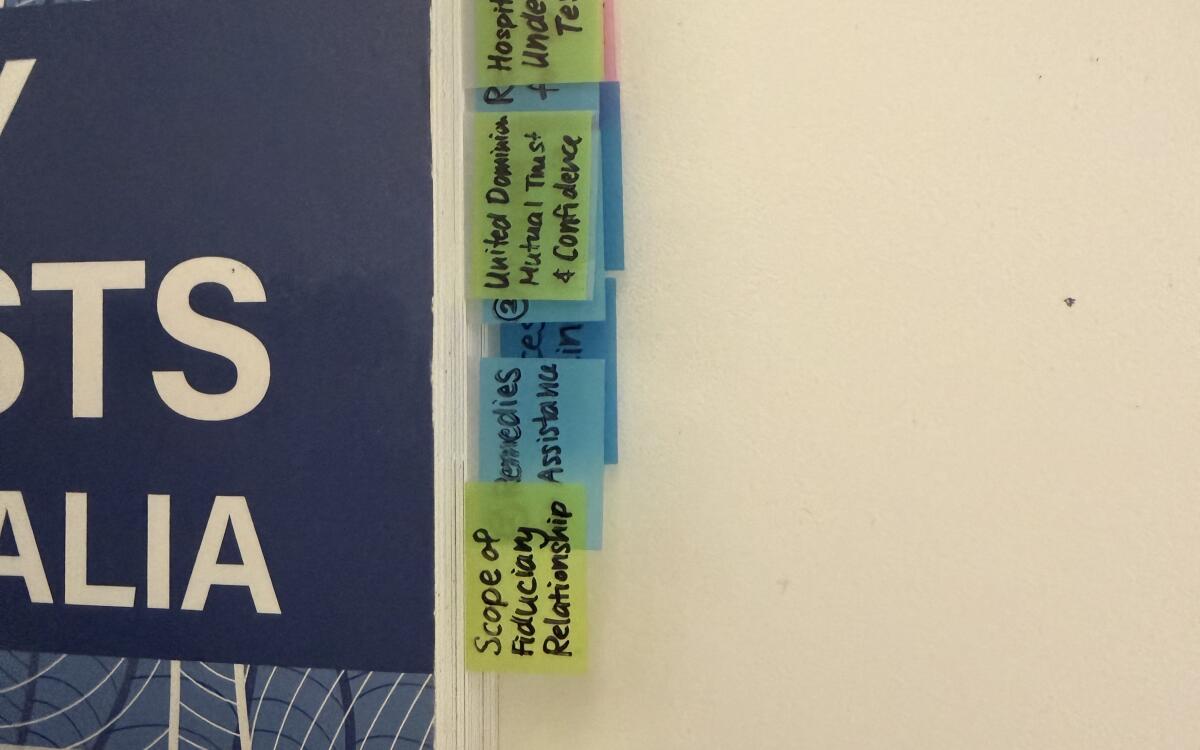 Y
STS
ALIA
R Hospit
f Unde
Te
United Dominion
Mutual Trust
& Confidence
②
ces
in
Remedies
Assistance
Scope of
Fiduciary
Relationship